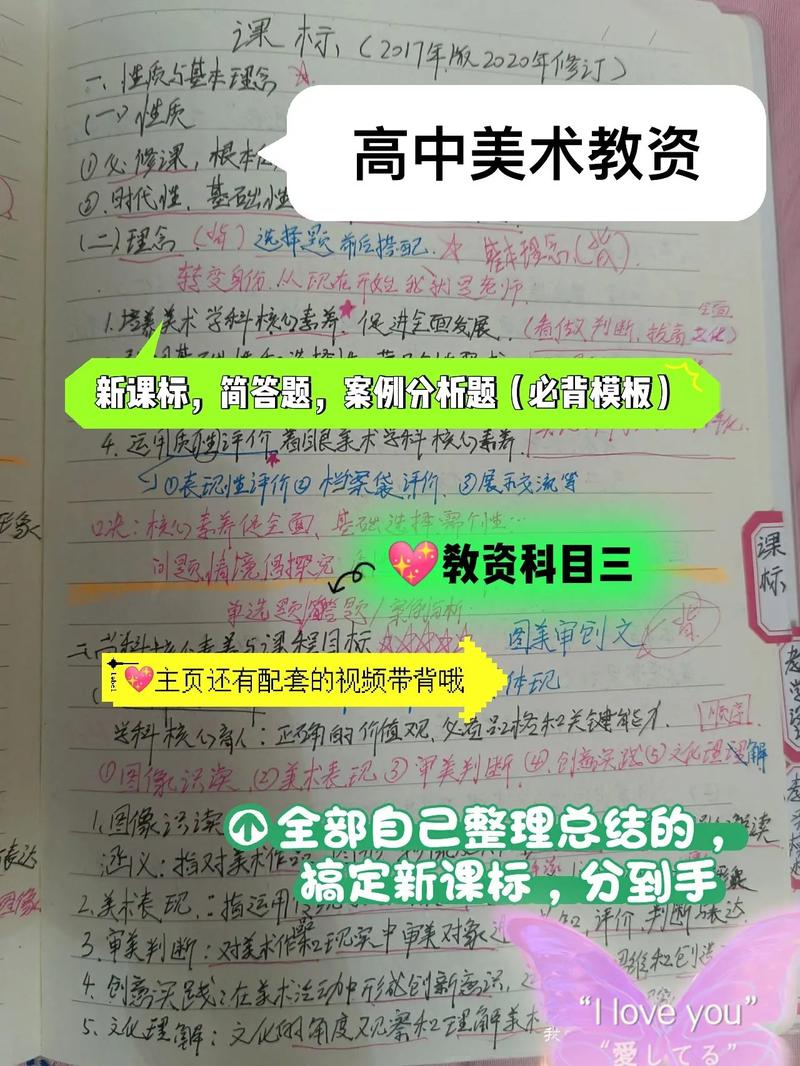 课标(2017年版2020年修订)
一、性质与基本理念
(一)性质
高中美术教资
①必修课,根本
②时代性、基础性
(二)理念(背)选择题前后搭配 基本理念(背)
转变身份,从现在开始我就是老师
1.培养美术学科核心素养,促进全面发展。
全面
(看做判断,拔高文化)
新课标,简答题,案例分析题(必背模板)
4.运用质性评价,着眼美术学科核心素养。
①表现性评价②档案袋评价 ③展示交流等
口决:核心素养促全面,基础选择
问题情境
形象
课标
💖教资科目三
单选题/简答题/案例分析
二、学科核心素养与课程目标 图美审创文 背
💖主页还有配套的视频带背哦
体现
学科核心育人:正确的价值观、必备品格和关键能力 顺序
①图像识读(2)美术表现③审美判断④创意实践(5)文化理解
1.图像识读
全部自己整理总结的,
搞定新课标,分到手
涵义:指对美术作品
表达
图像
2.美术表现:指运用
3.审美判断:对美术作品和现实中审美对象进 评价、判断与表达
4.创意实践:在美术活动中形成创新意识,
5.文化理解:文化的角度观察和理解美术
我
“I love you”
“愛してる”